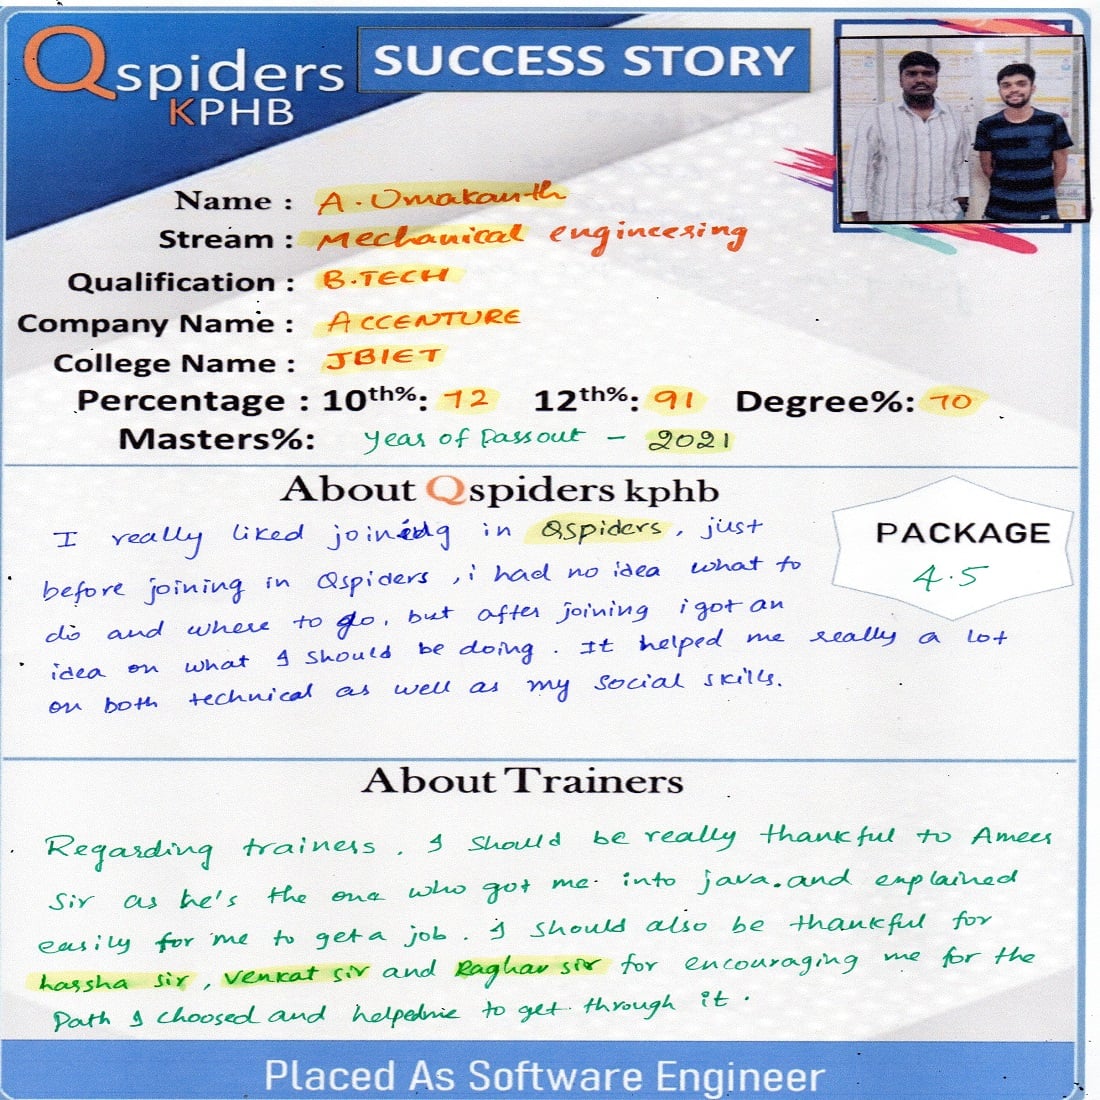 Qspiders
KPHB
SUCCESS STORY
Name : A. Umakanth
Stream : Mechanical engineering
Qualification : B.TECH
Company Name : ACCENTURE
College Name : JBIET
Percentage : 10th%: 72 12th%: 91 Degree%: 70
Masters%: Year of Passout - 2021
About Qspiders kphb
I really liked joining in QSpiders, just
before joining in Qspiders, i had no idea what to
do and where to go, but after joining i got an
idea on what I should be doing. It helped me really a lot
on both technical as well as my social skills.
PACKAGE
4.5
About Trainers
Regarding trainers, I should be really thankful to Ameer
Sir as he's the one who got me into java. and explained
easily for me to get a job. I should also be thankful for
harsha sir, Venkat sir and Raghav sir for encouraging me for the
Path I choosed and helped me to get through it.
Placed As Software Engineer